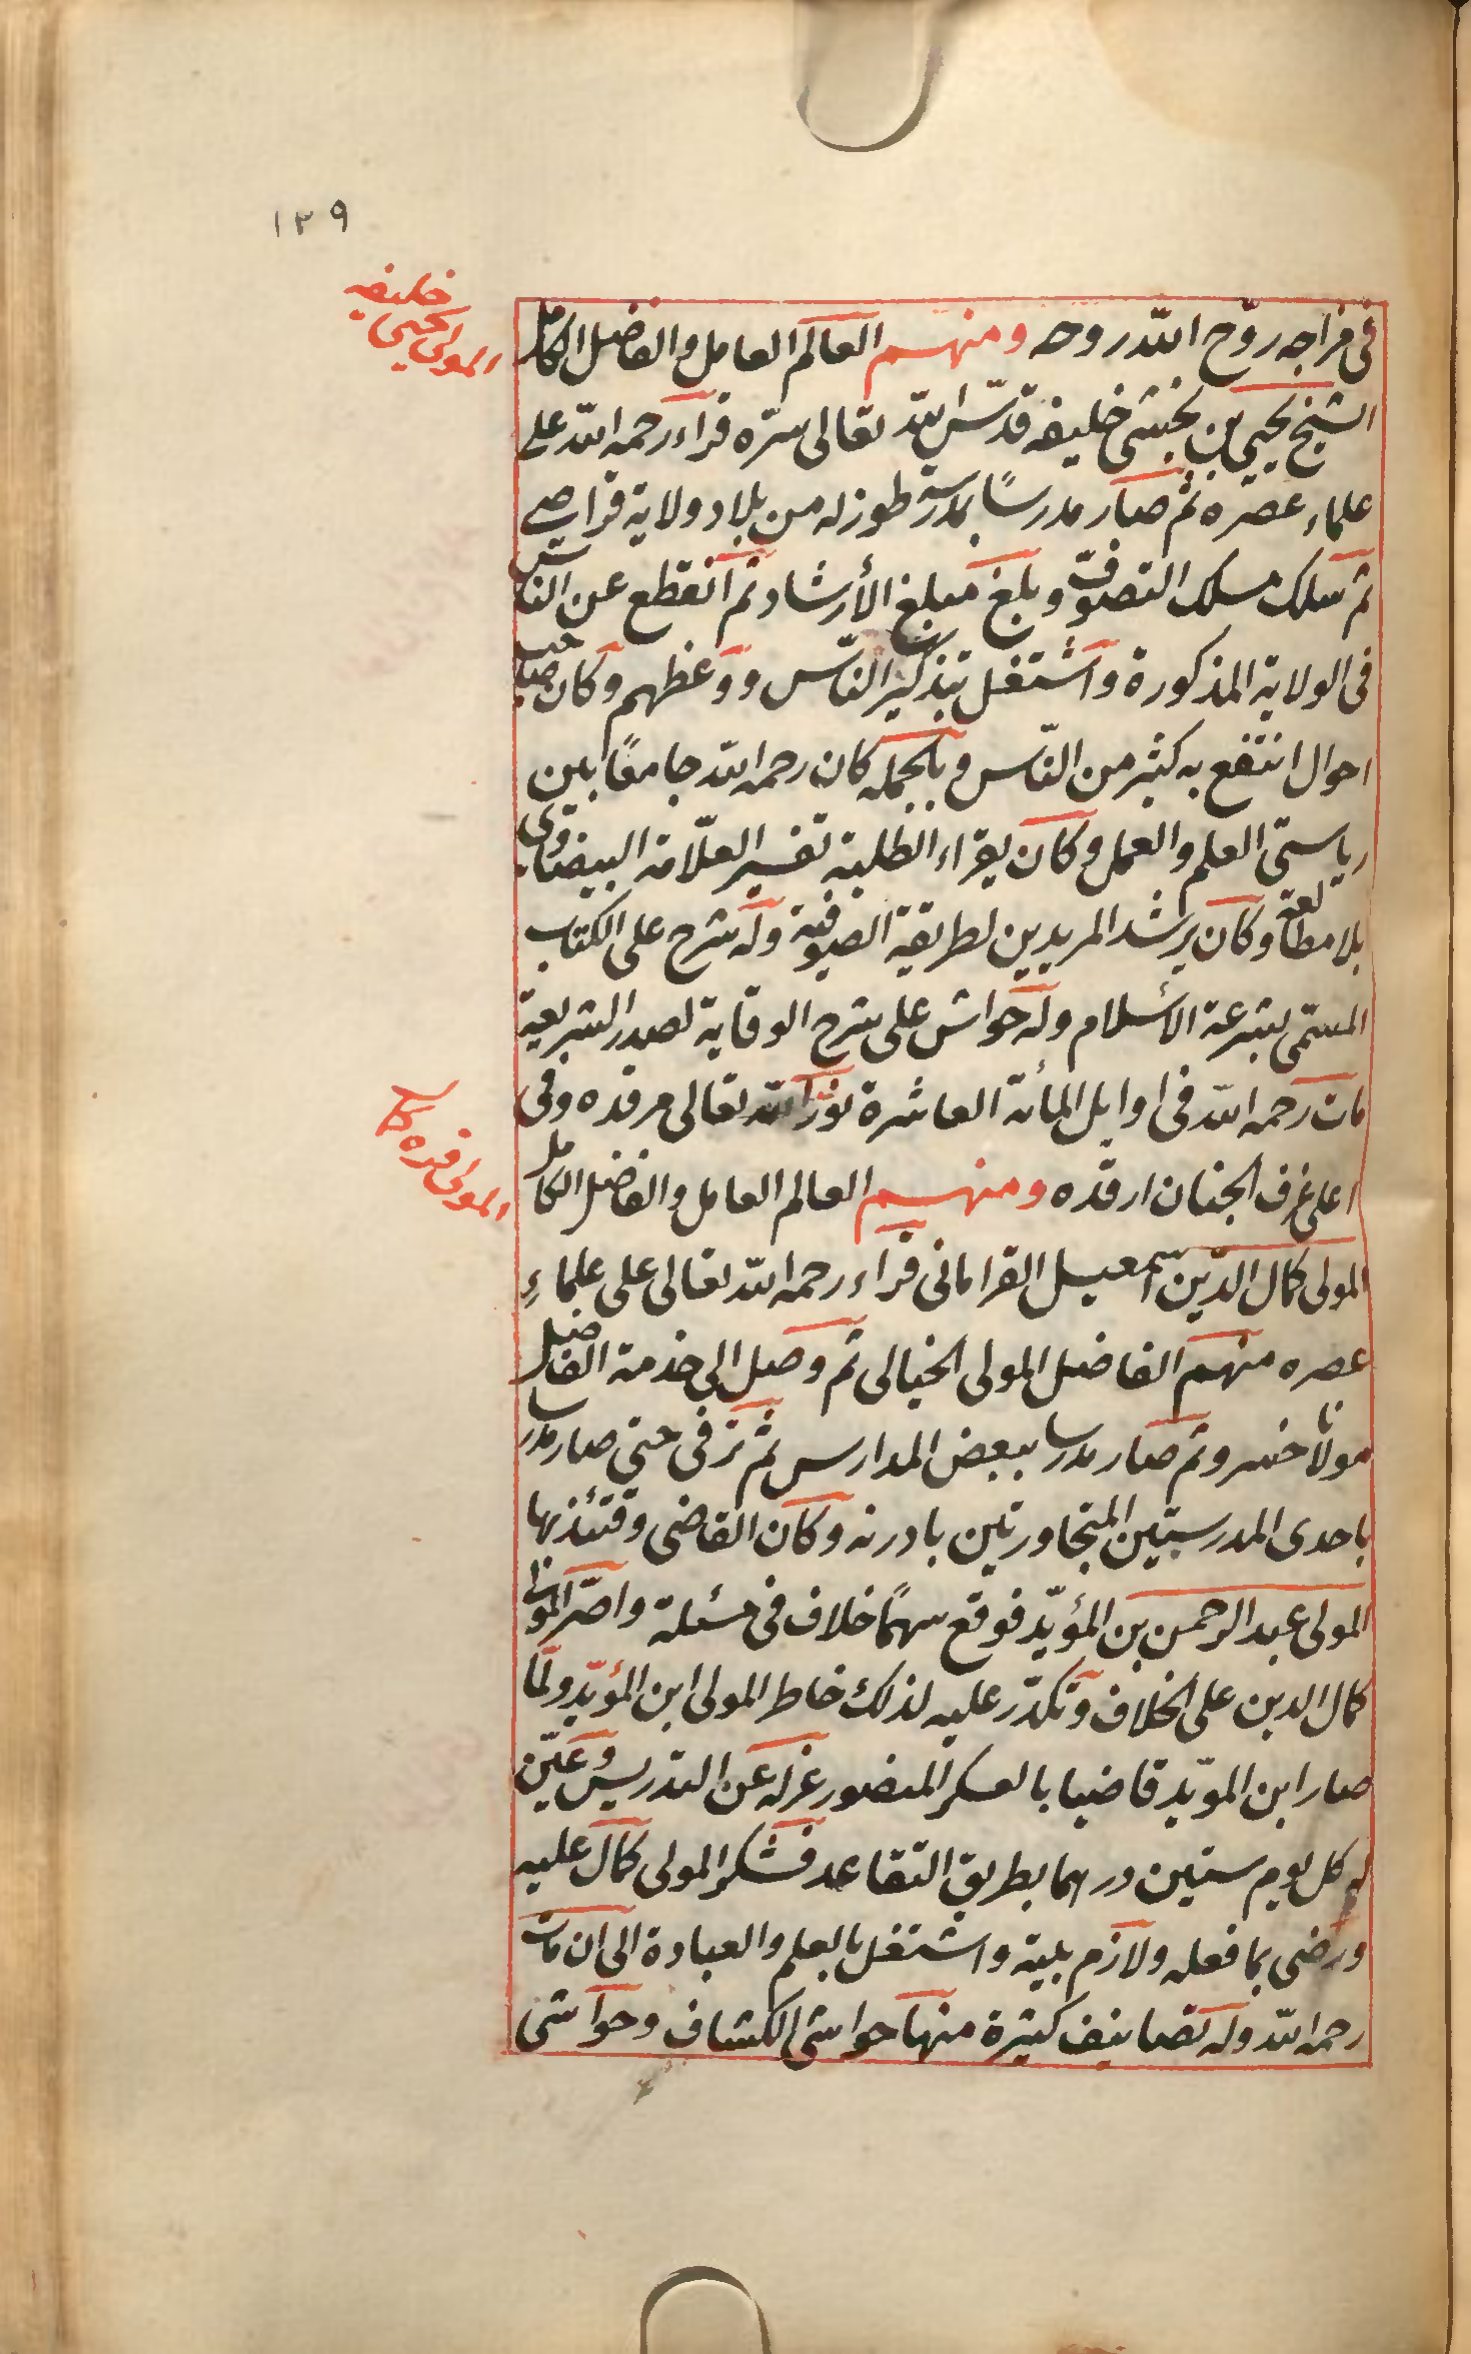 ١٣٩
المولى يحيى
خليفه
في مزاجه روّح اللّه روحه ومنهم العالم العامل والفاضل الكامل
الشيخ يحيى بن بخشى خليفه قدّس اللّه تعالى سرّه قراء رحمه اللّه على
علماء عصره ثم صار مدرسًا بمدرسة طوزله من بلاد ولاية قراصى
ثم سلك مسلك التصوّف وبلغ مبلغ الأرشاد ثم انقطع عن الناس
فى الولاية المذكورة واشتغل بتذكير النّاس ووعظهم وكان صاحب
احوال انتفع به كثير من النّاس وبالجملة كان رحمه اللّه جامعًا بين
رياستى العلم والعمل وكان يقراء الطلبة تفسير العلّامة البيضاوى
بلا مطالعة وكان يرشد المريدين لطريقة الصوفية وله شرح على الكتاب
المسمّى بشرعة الأسلام وله حواش على شرح الوقاية لصدر الشريعة
مات رحمه اللّه فى اوايل المأة العاشرة نوّر اللّه تعالى مرقده وفى
اعلى غرف الجنان ارقده ومنهم العالم العامل والفاضل الكامل
المولى قره كمال
المولى كمال الدّين اسمعيل القرامانى قراء رحمه اللّه تعالى على علماءِ
عصره منهم الفاضل المولى الخيالى ثم وصل الى خدمة الفاضل
مولانا خسرو ثم صار مدرسا ببعض المدارس ثم ترقى حتى صار مدرسا
باحدى المدرستين المتجاورتين بادرنه وكان القاضى وقتئذ بها
المولى عبد الرحمن بن المؤيّد فوقع بينهما خلاف فى مسئلة واصرّ المولى
كمال الدين على الخلاف وتكدّر عليه لذلك خاطر المولى ابن المؤيّد ولمّا
صار ابن المويّد قاضيا بالعسكر المنصور عزله عن التدريس وعيّن
له كل يوم ستين درهما بطريق التقاعد فشكر المولى كمال عليه
ورضى بما فعله ولازم بيته واشتغل بالعلم والعبادة الى ان مات
رحمه اللّه وله تصانيف كثيرة منها حواشى الكشاف وحواشى